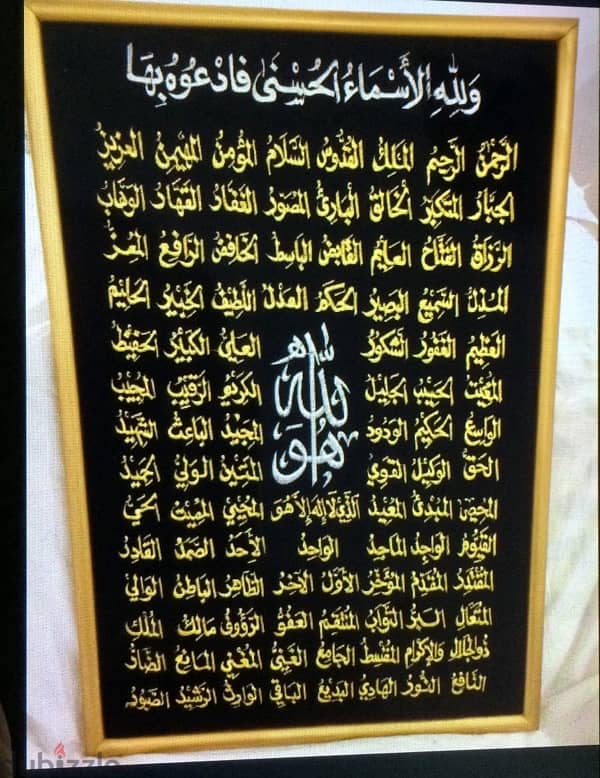 وَلِلّٰهِ الأَسْمَاءُ الحُسْنَى فَادْعُوهُ بِهَا
الرَّحْمٰنُ الرَّحِيمُ المَلِكُ القُدُّوسُ السَّلَامُ المُؤْمِنُ المُهَيْمِنُ العَزِيزُ
الجَبَّارُ المُتَكَبِّرُ الخَالِقُ البَارِئُ المُصَوِّرُ الغَفَّارُ القَهَّارُ الوَهَّابُ
الرَّزَّاقُ الفَتَّاحُ العَلِيمُ القَابِضُ البَاسِطُ الخَافِضُ الرَّافِعُ المُعِزُّ
المُذِلُّ السَّمِيعُ البَصِيرُ الحَكَمُ العَدْلُ اللَّطِيفُ الخَبِيرُ الحَلِيمُ
العَظِيمُ الغَفُورُ الشَّكُورُ العَلِيُّ الكَبِيرُ الحَفِيظُ
المُقِيتُ الحَسِيبُ الجَلِيلُ الكَرِيمُ الرَّقِيبُ المُجِيبُ
الوَاسِعُ الحَكِيمُ الوَدُودُ المَجِيدُ البَاعِثُ الشَّهِيدُ
الحَقُّ الوَكِيلُ القَوِيُّ المَتِينُ الوَلِيُّ الحَمِيدُ
هُوَ اللّٰه
المُحْصِي المُبْدِئُ المُعِيدُ الَّذِي لَا إِلٰهَ إِلَّا هُوَ المُحْيِي المُمِيتُ الحَيُّ
القَيُّومُ الوَاجِدُ المَاجِدُ الوَاحِدُ الأَحَدُ الصَّمَدُ القَادِرُ
المُقْتَدِرُ المُقَدِّمُ المُؤَخِّرُ الأَوَّلُ الآخِرُ الظَّاهِرُ البَاطِنُ الوَالِي
المُتَعَالِ البَرُّ التَّوَّابُ المُنْتَقِمُ العَفُوُّ الرَّؤُوفُ مَالِكُ المُلْكِ
ذُو الجَلَالِ وَالإِكْرَامِ المُقْسِطُ الجَامِعُ الغَنِيُّ المُغْنِي المَانِعُ الضَّارُّ
النَّافِعُ النُّورُ الهَادِي البَدِيعُ البَاقِي الوَارِثُ الرَّشِيدُ الصَّبُورُ
ubizzle